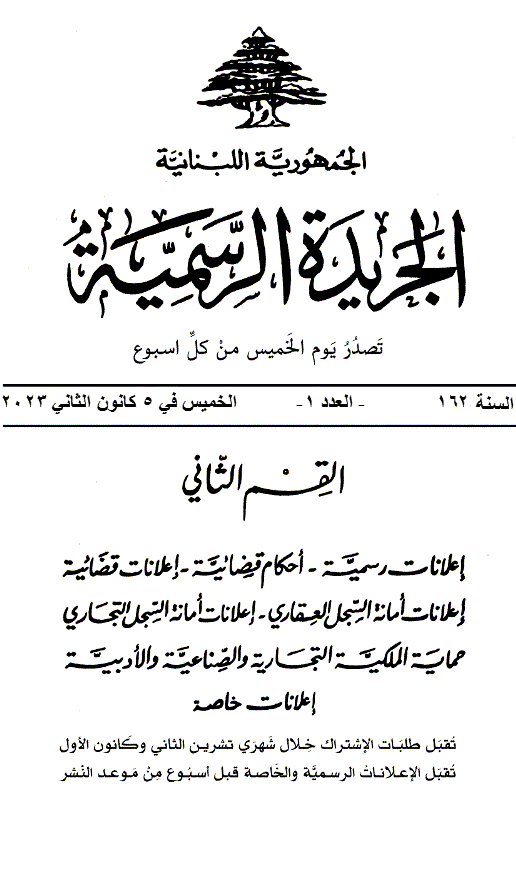 الجُمهُوريَّة اللبْنانيَّة
الجَريدَة الرسَّمِيَّة
تَصدُرُ يَوم الخَميس منْ كلِّ اسبوع
السنة ١٦٢ - العدد ١- الخميس في ٥ كانون الثاني ٢٠٢٣
القِسْم الثَّاني
إعلانات رسميَّة - أحكام قضائيَّة - إعلانات قضائية
إعلانات أمانة السِّجل العقاري - إعلانات أمانة السِّجل التجاري
حماية الملكيَّة التجارية والصِّناعيَّة والأدبيَّة
إعلانات خاصة
تُقبَل طلبَات الإشتراك خِلال شَهرَي تشرين الثاني وكَانون الأول
تُقبَل الإعلاناتُ الرسميَّة والخَاصة قبل أسبُوع مِنْ مَوعد النْشر